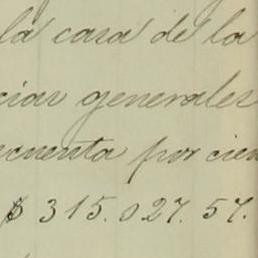 la casa de la
cias generales
cuenta por cien
$ 315.027.57.